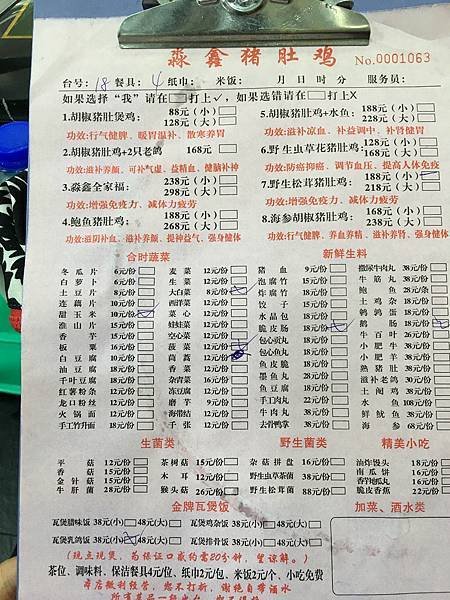 淼鑫猪肚鸡
No.0001063
台号: 18 餐具: 4 纸巾: 米饭: 月 日 时 分 服务员:
如果选择“我”请在□打上✓, 如果选错请在□打上X
1.胡椒猪肚煲鸡: 88元(小) 128元(大)
功效:行气健脾、暖胃温补、散寒养胃
2.胡椒猪肚鸡+2只老鸽 168元
功效:滋补养颜、可补气虚、益精血、健脑补神
3.淼鑫全家福: 238元(小) 298元(大)
功效:增强免疫力、减体力疲劳
4.鲍鱼猪肚鸡: 168元(小) 268元(大)
功效:滋阴补血、滋补养颜、提神益气、强身健体
5.胡椒猪肚鸡+水鱼: 188元(小) 228元(大)
功效:滋补凉血、补益调中、补肾健胃
6.野生虫草花猪肚鸡: 118元(小) 168元(大)
功效:防癌抑癌、调节血压、提高人体免疫
7.野生松茸猪肚鸡: 188元(小) 218元(大)
功效:增强免疫力、减体力疲劳
8.海参胡椒猪肚鸡: 168元(小) 238元(大)
功效:行气健脾、养血养精、滋补养肾、强身健体
合时蔬菜
冬瓜片 6元/份 麦菜 12元/份
白萝卜 6元/份 生菜 12元/份
土豆片 8元/份 大白菜 8元/份
连藕片 10元/份 西洋菜 12元/份
甜玉米 10元/份 菜心 12元/份
淮山片 15元/份 娃娃菜 12元/份
香芋 15元/份 空心菜 12元/份
板粟 16元/份 菠菜 12元/份
白豆腐 10元/份 茼蒿 12元/份
油豆腐 18元/份 香菜 12元/份
千叶豆腐 18元/份 杂青菜 16元/份
红薯粉条 10元/份 冻豆腐 12元/份
龙口粉丝 12元/份 磨芋 9元/份
火锅面 12元/份 海带结 12元/份
手工竹升面 18元/份 千张 12元/份
新鲜生料
猪血 9元/份 撒尿牛肉丸 38元/份
泡腐竹 15元/份 牛筋丸 38元/份
炸腐竹 18元/份 鲍鱼 28元/条
饺子 18元/份 土鸡杂 38元/份
水晶包 18元/份 鹌鹑蛋 18元/份
脆皮肠 18元/份 鹅肠 38元/份
包心贡丸 18元/份 牛百叶 26元/份
包心鱼丸 18元/份 小肥牛 38元/份
鱼皮脆 18元/份 小肥羊 38元/份
墨鱼丸 28元/份 熟猪肚 38元/份
鱼豆腐 18元/份 滋补老鸽 30元/份
手工肉丸 22元/份 土阉鸡 38元/份
牛肉丸 38元/份 水鱼 108元/份
去骨鸭掌 38元/份 鲜鱿鱼 38元/份
海参 68元/份
生菌类
平菇 12元/份 茶树菇 15元/份
香菇 15元/份 木耳 12元/份
金针菇 15元/份
牛肝菌 28元/份 猴头菇 26元/份
野生菌类
杂菇拼盘 16元/份
野生虫草茶菌 38元/份
野生松茸菌 88元/份
精美小吃
油炸馒头 18元/份
南瓜饼 16元/份
脆皮香蕉 22元/份
金牌瓦煲饭
瓦煲腊味饭 38元(小)□48元(大)□ 瓦煲鸡杂饭 38元(小)□48元(大)□
瓦煲乳鸽饭 38元(小)□48元(大)□ 瓦煲排骨饭 38元(小)□48元(大)□
加菜、酒水类
(现点现煲, 为保证口感约需20分钟, 望谅解。)
茶位、调味料、保洁餐具4元/位、纸巾2元/包、米饭2元/个、小吃免费
本店微利经营, 恕不打折, 谢绝自带酒水